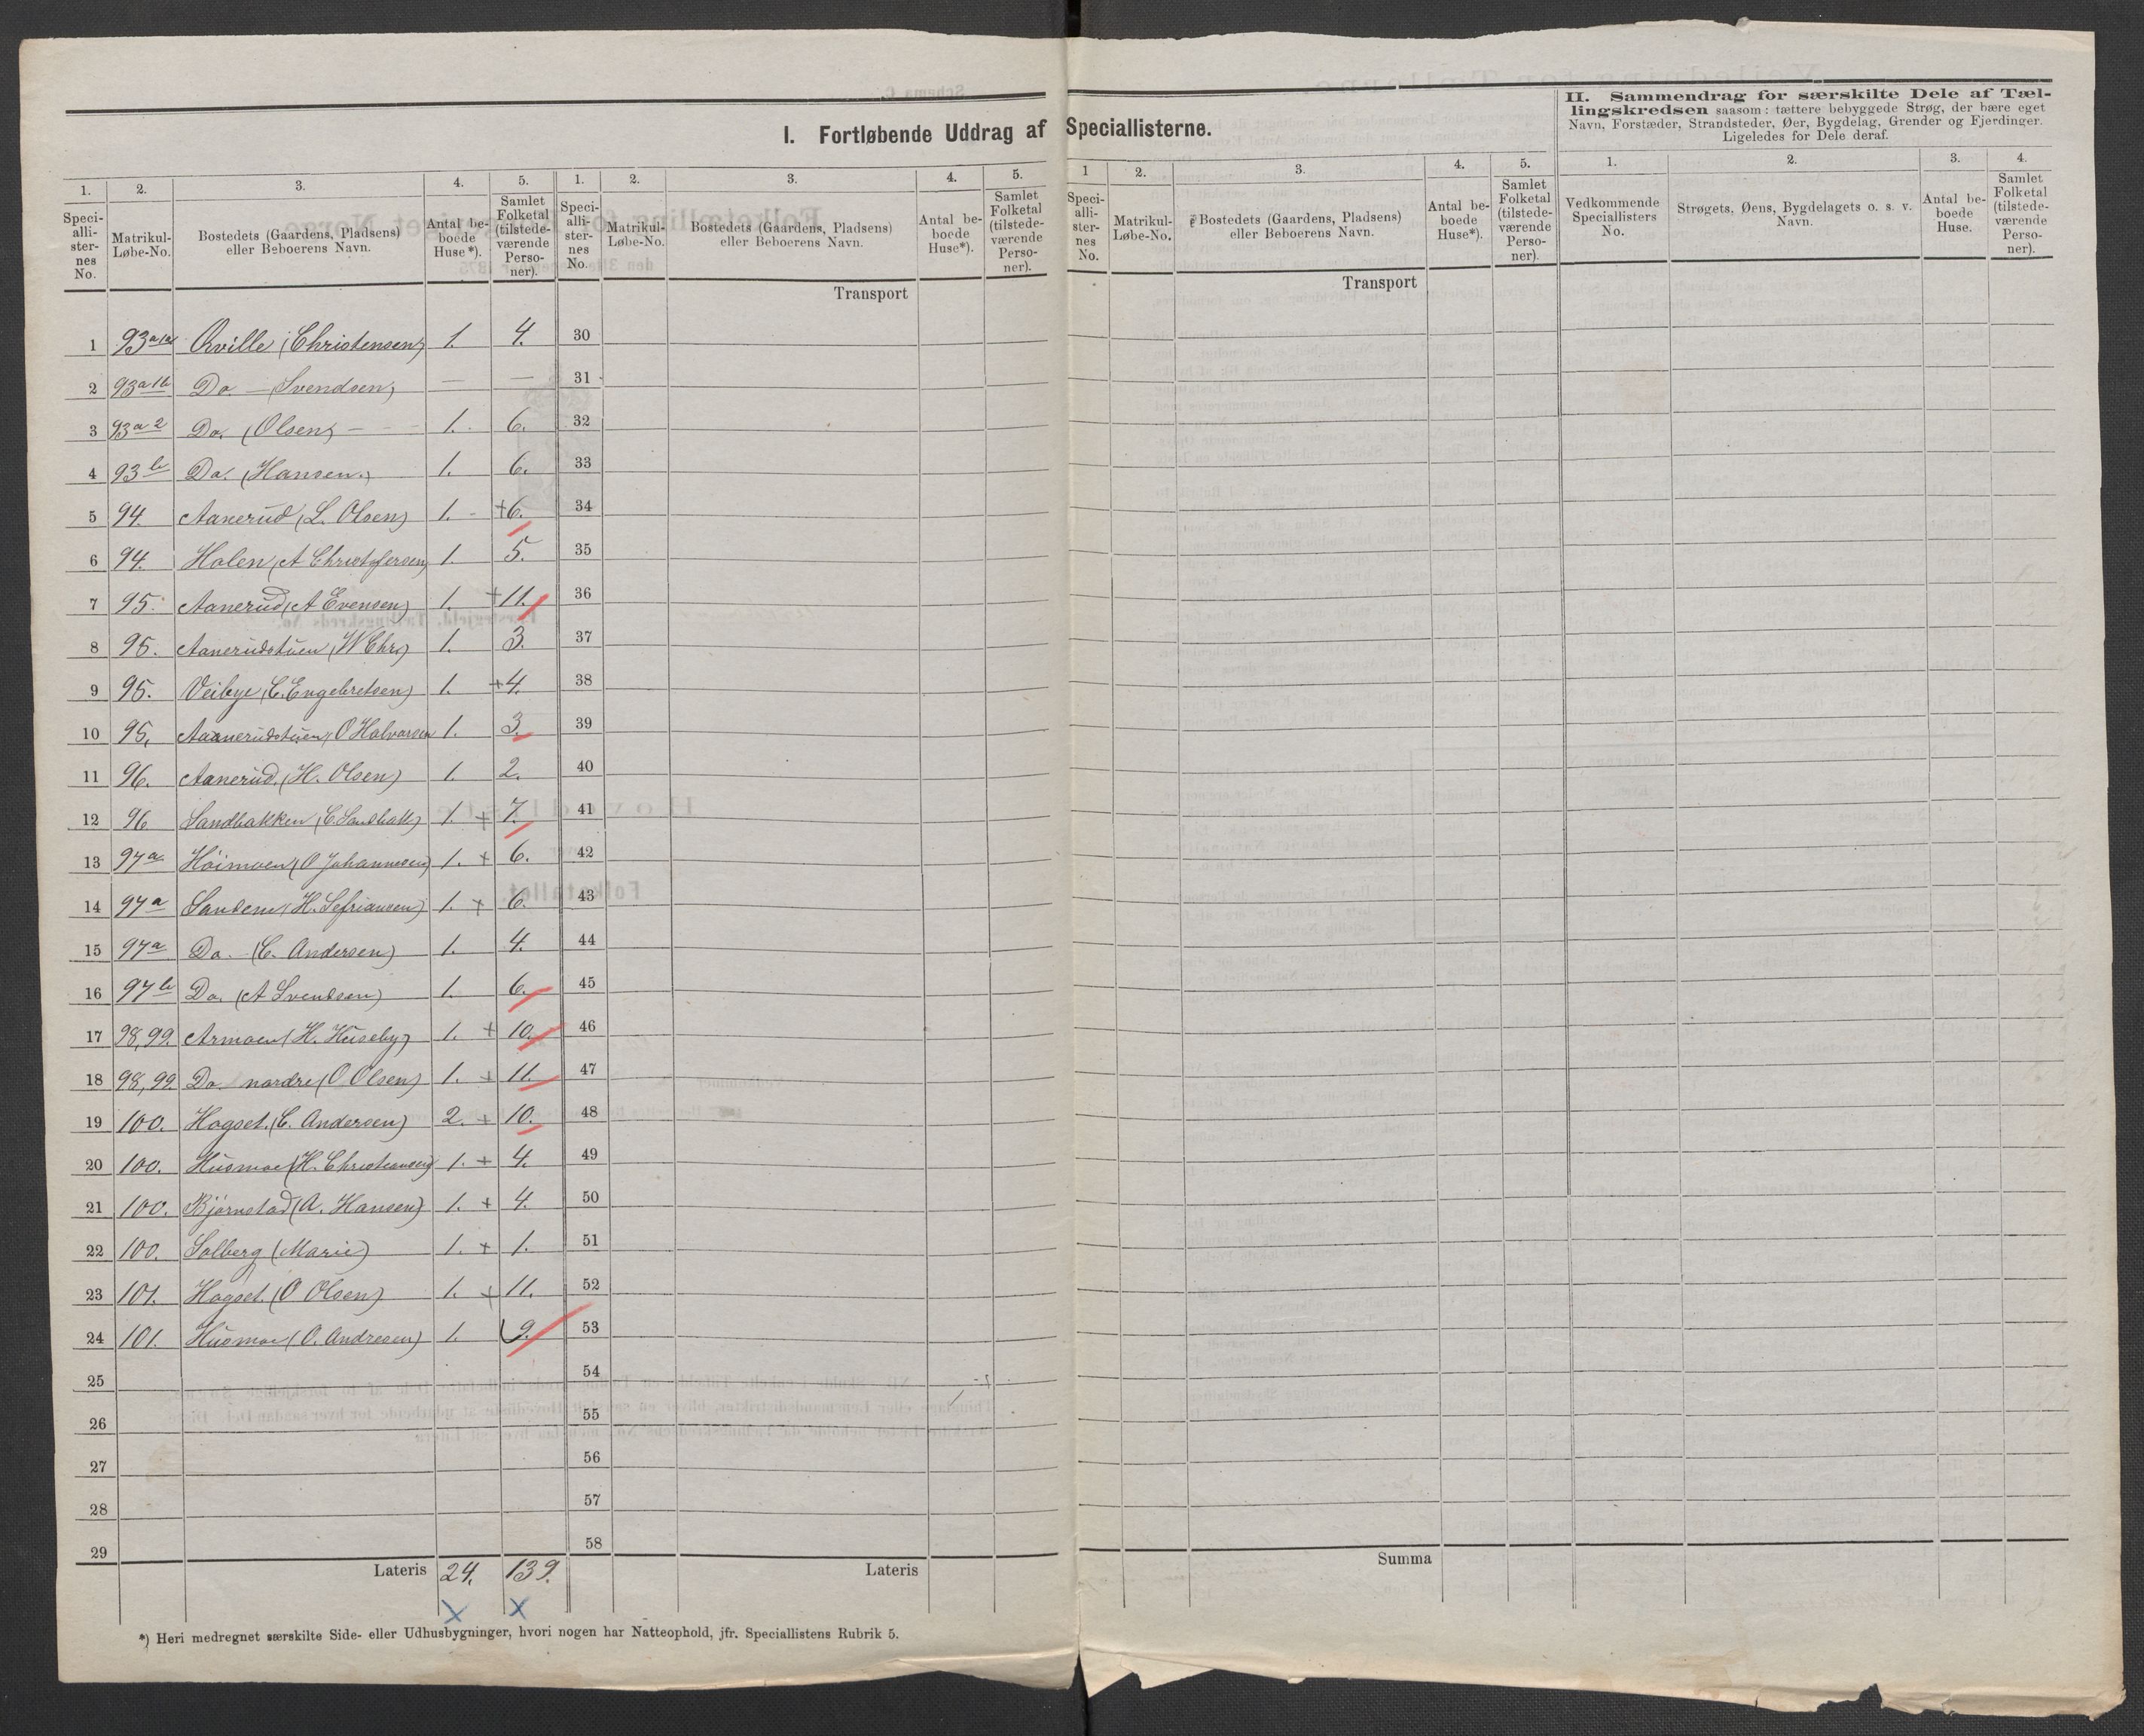 I. Fortløbende Uddrag af Speciallisterne.
II. Sammendrag for særskilte Dele af Tæl-
lingskredsen saasom: tættere bebyggede Strøg, der bære eget
Navn, Forstæder, Strandsteder, Øer, Bygdelag, Grender og Fjerdinger.
Ligeledes for Dele deraf.
1. 2. 3. 4. 5. 1. 2. 3. 4. 5. 1 2. 3. 4. 5. 1. 2. 3. 4.
Speci-
alli-
ster-
nes
No.
Matrikul-
Løbe-No.
Bostedets (Gaardens, Pladsens)
eller Beboerens Navn.
Antal be-
boede
Huse*).
Samlet
Folketal
(tilstede-
værende
Perso-
ner).
Speci-
alli-
ster-
nes
No.
Matrikul-
Løbe-No.
Bostedets (Gaardens, Pladsens)
eller Beboerens Navn.
Antal be-
boede
Huse*).
Samlet
Folketal
(tilstede-
værende
Perso-
ner).
Speci-
alli-
ster-
nes
No.
Matrikul-
Løbe-No.
Bostedets (Gaardens, Pladsens)
eller Beboerens Navn.
Antal be-
boede
Huse*).
Samlet
Folketal
(tilstede-
værende
Perso-
ner).
Vedkommende
Speciallisters
No.
Strøgets, Øens, Bygdelagets o. s. v.
Navn.
Antal be-
boede
Huse.
Samlet
Folketal
(tilstede-
værende
Perso-
ner).
Transport Transport
1 93a1a Qville (Christensen) 1. 4. 30
2 93a1b Do. — (Svendsen) — — 31
3 93a2 Do. (Olsen) — 1. 6. 32
4 93b Do. (Hansen.) 1. 6. 33
5 94. Aanerud (L. Olsen) 1. +6. 34
6 94. Holen (A Christofersen) 1. 5. 35
7 95. Aanerud (A Evensen) 1. +11. 36
8 95. Aanerudstuen (W Chr) 1. 3. 37
9 95. Veibye (C. Engebretsen) 1. +4. 38
10 95. Aaanerudstuen (O Halvorsen 1. 3. 39
11 96. Aanerud. (H. Olsen) 1. 2. 40
12 96 Sandbakken (C. Sandbakk) 1. + 7. 41
13 97a Hoimoen (O Johannesen) 1. + 6. 42
14 97a Sanden (H. Sefriansen) 1. + 6. 43
15 97a Do. (C. Andersen) 1. 4. 44
16 97b Do. (A Svendsen) 1. 6. 45
17 98,99. Armoen (H. Huseby) 1. + 10. 46
18 98,99. Do. nordre (O Olsen) 1. + 11. 47
19 100. Hogset. (C. Andersen) 2. + 10. 48
20 100. Husmoe (H. Christiansen) 1. + 4. 49
21 100. Bjørnstad (A. Hansen) 1. + 4. 50
22 100. Solberg (Marie) 1. + 1. 51
23 101. Hogset. (O Olsen) 1. + 11. 52
24 101. Husmoe (O. Andresen) 1. 9. 53
25 54
26 55
27 56
28 57
29 58
Lateris 24. 139. Lateris Summa
x x
*) Heri medregnet særskilte Side- eller Udhusbygninger, hvori nogen har Natteophold, jfr. Speciallistens Rubrik 5.